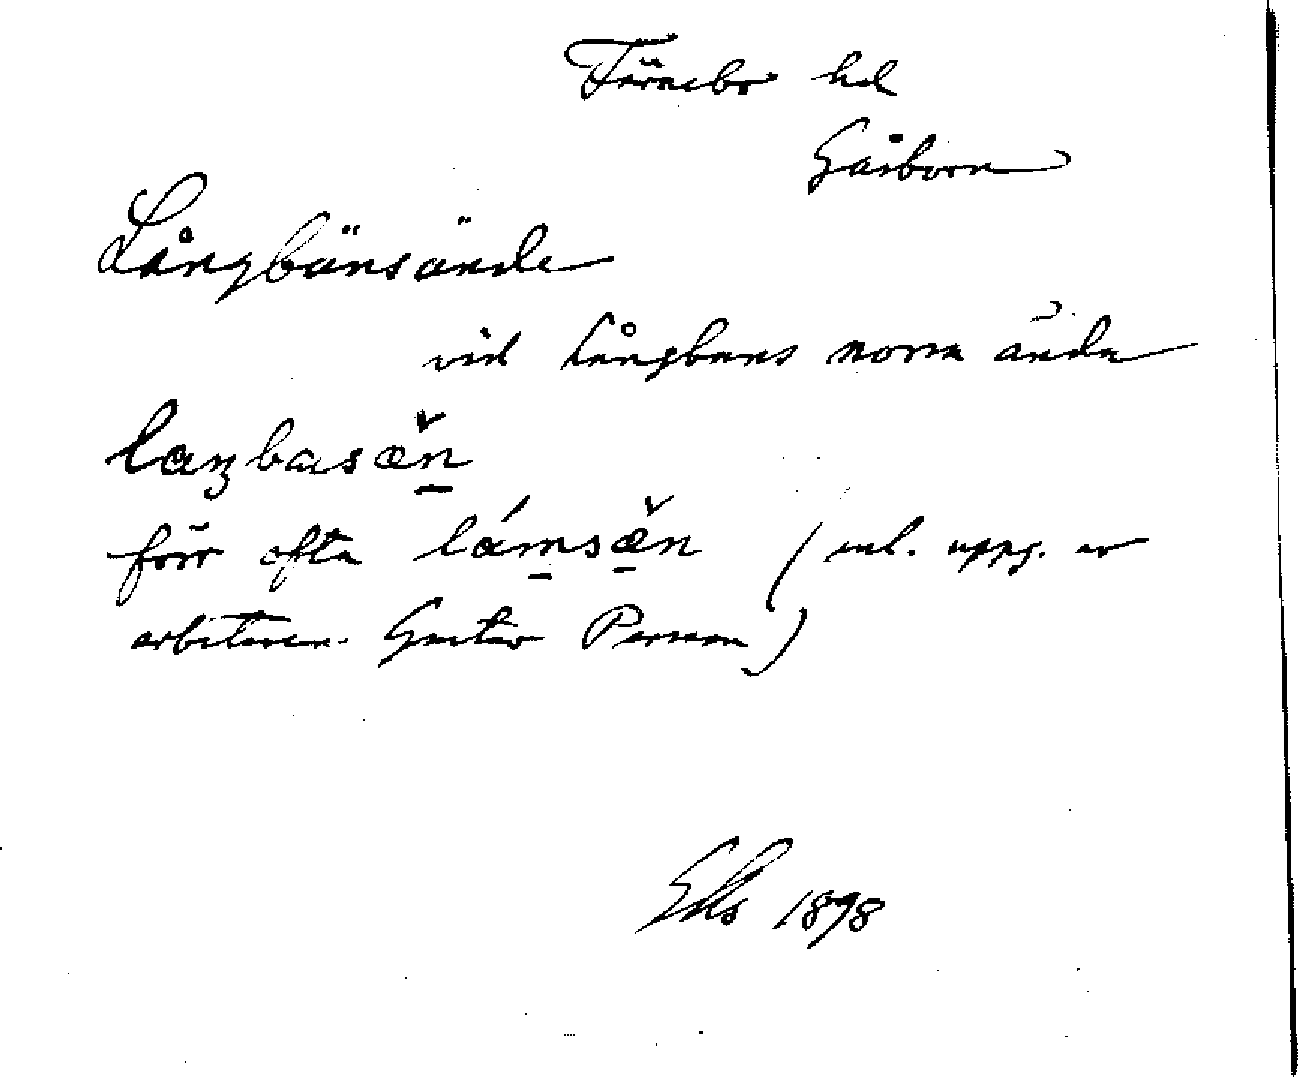 Färnebo hd
Gåsborn
Långbänsände
vid Långbans norra ända
laŋbasæ̌n̠
förr ofta lám̠sæ̠̌n (enl. uppg. av
arbetaren Gustav Persson)
1898